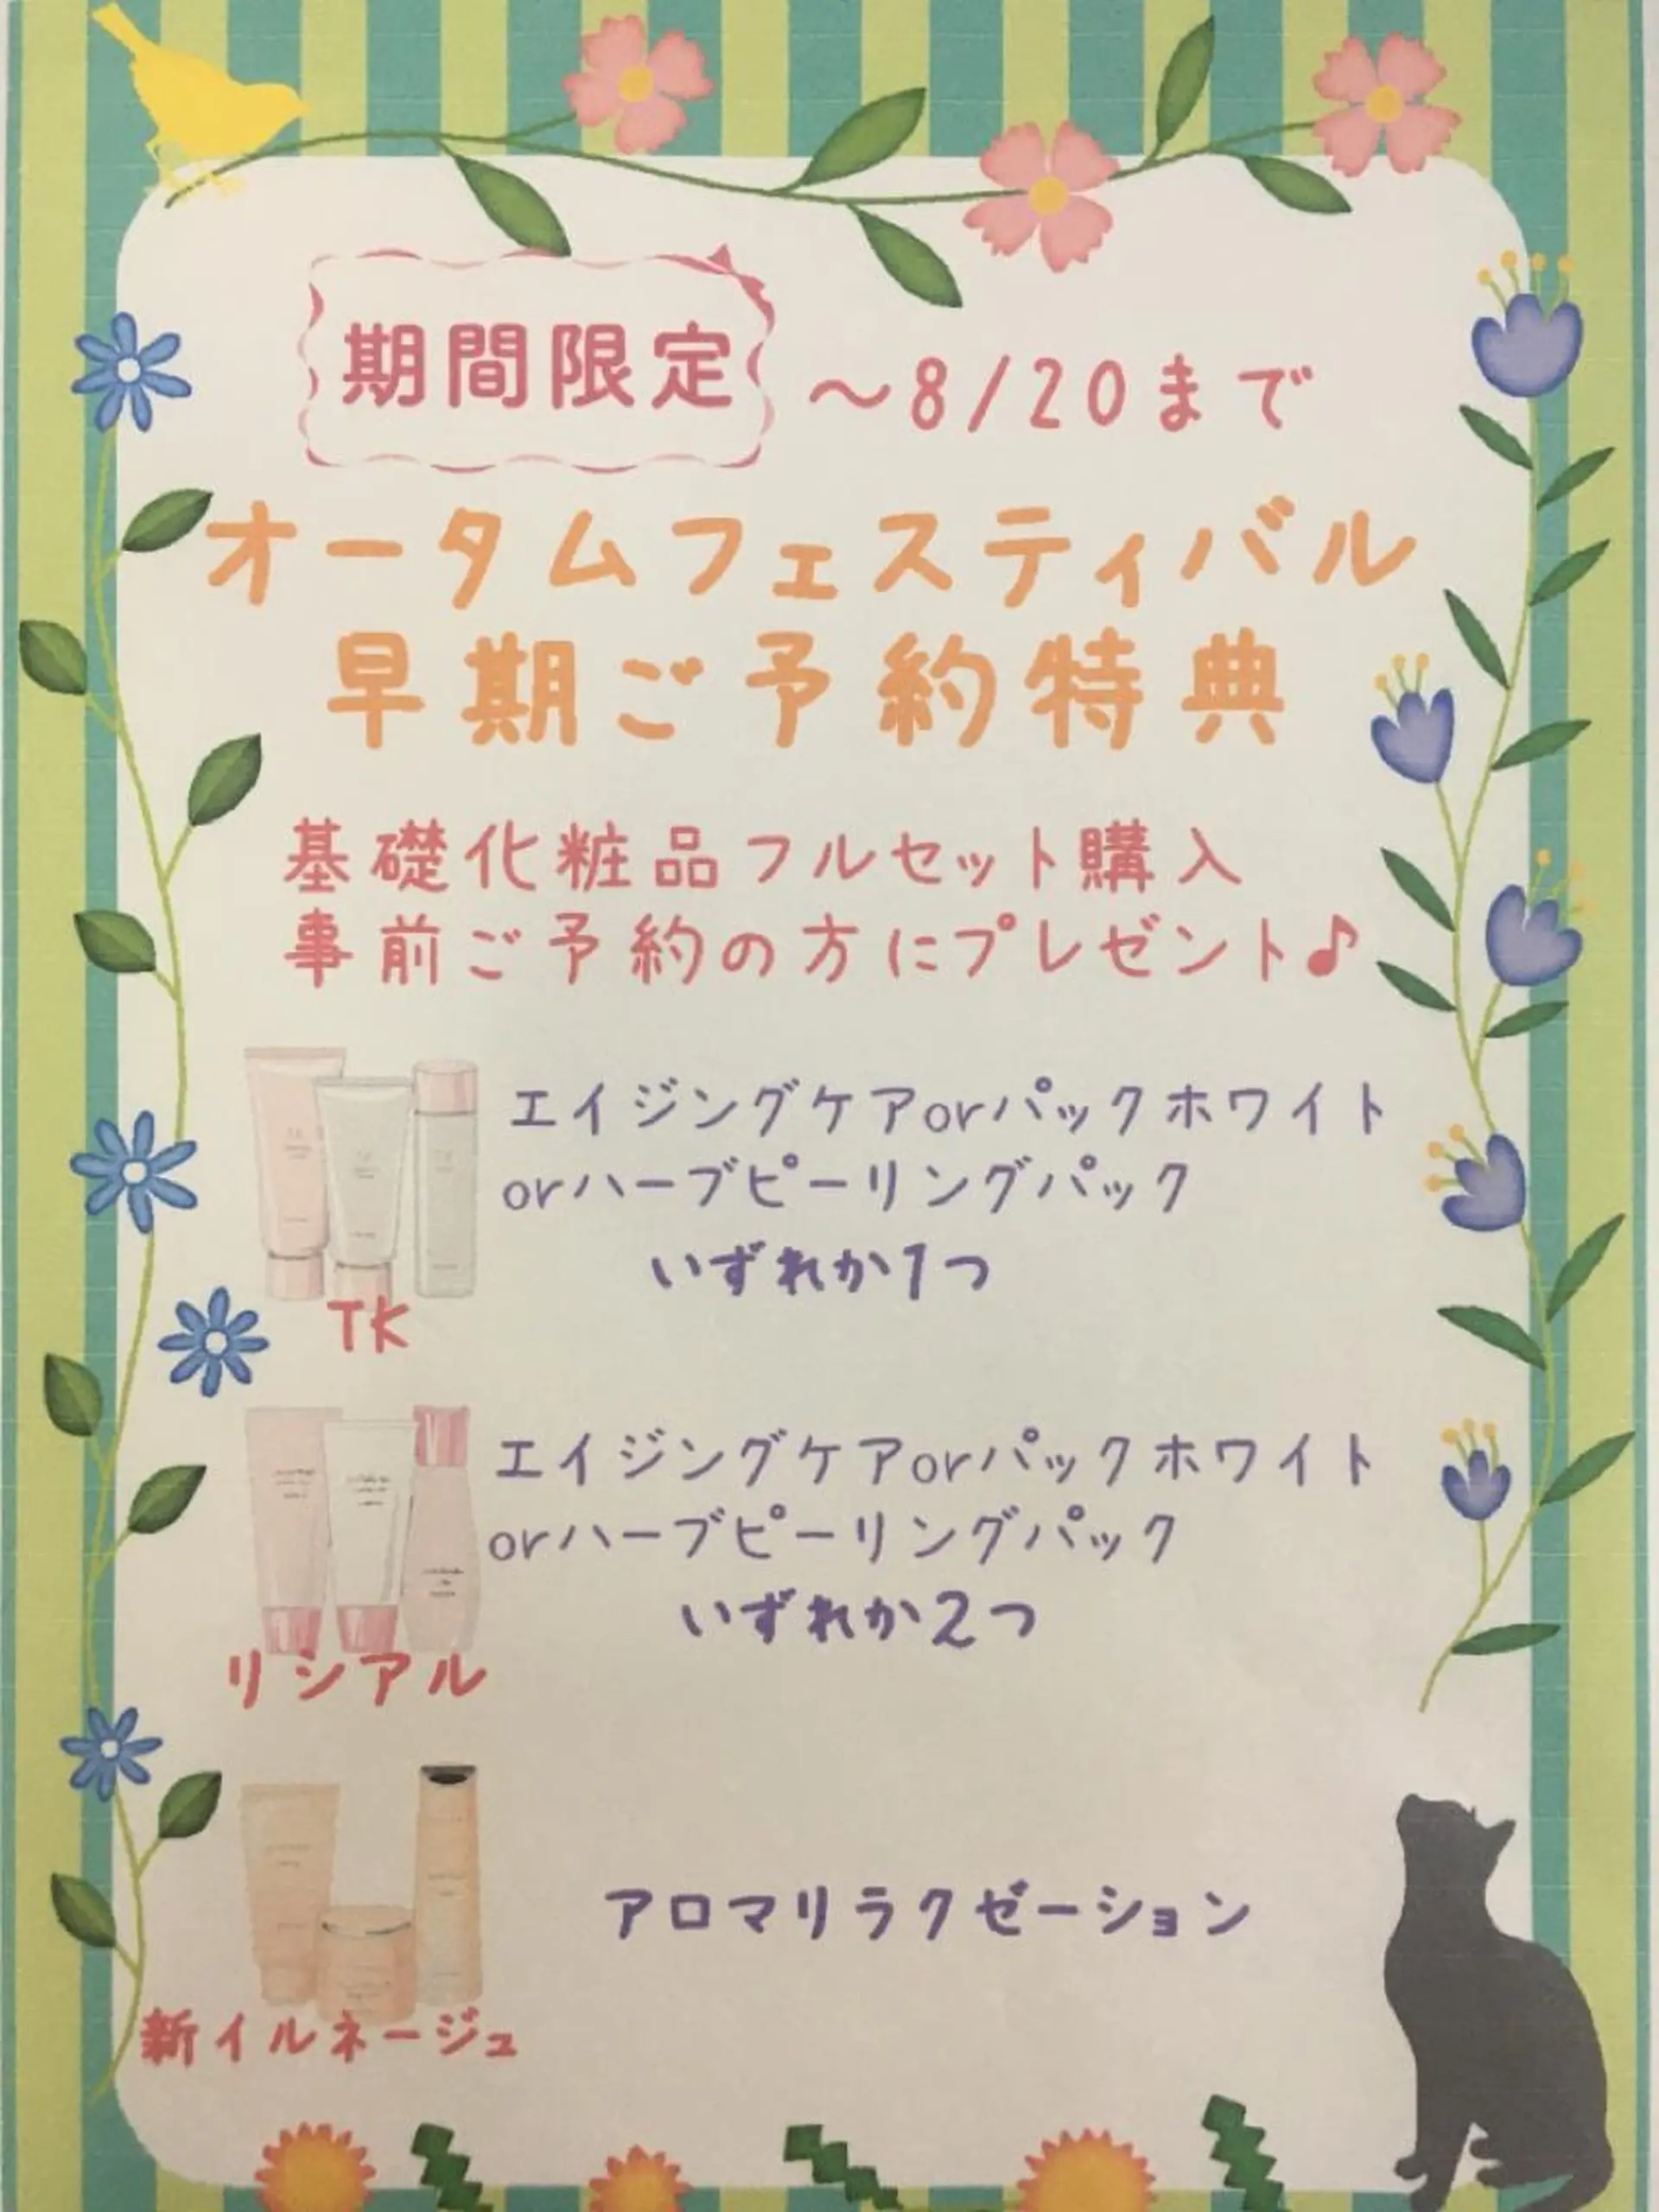 期間限定 ～8/20まで
オータムフェスティバル
早期ご予約特典
基礎化粧品フルセット購入
事前ご予約の方にプレゼント♪
エイジングケアorパックホワイト
orハーブピーリングパック
いずれか1つ
TK
エイジングケアorパックホワイト
orハーブピーリングパック
いずれか2つ
リシアル
アロマリラクゼーション
新イルネージュ